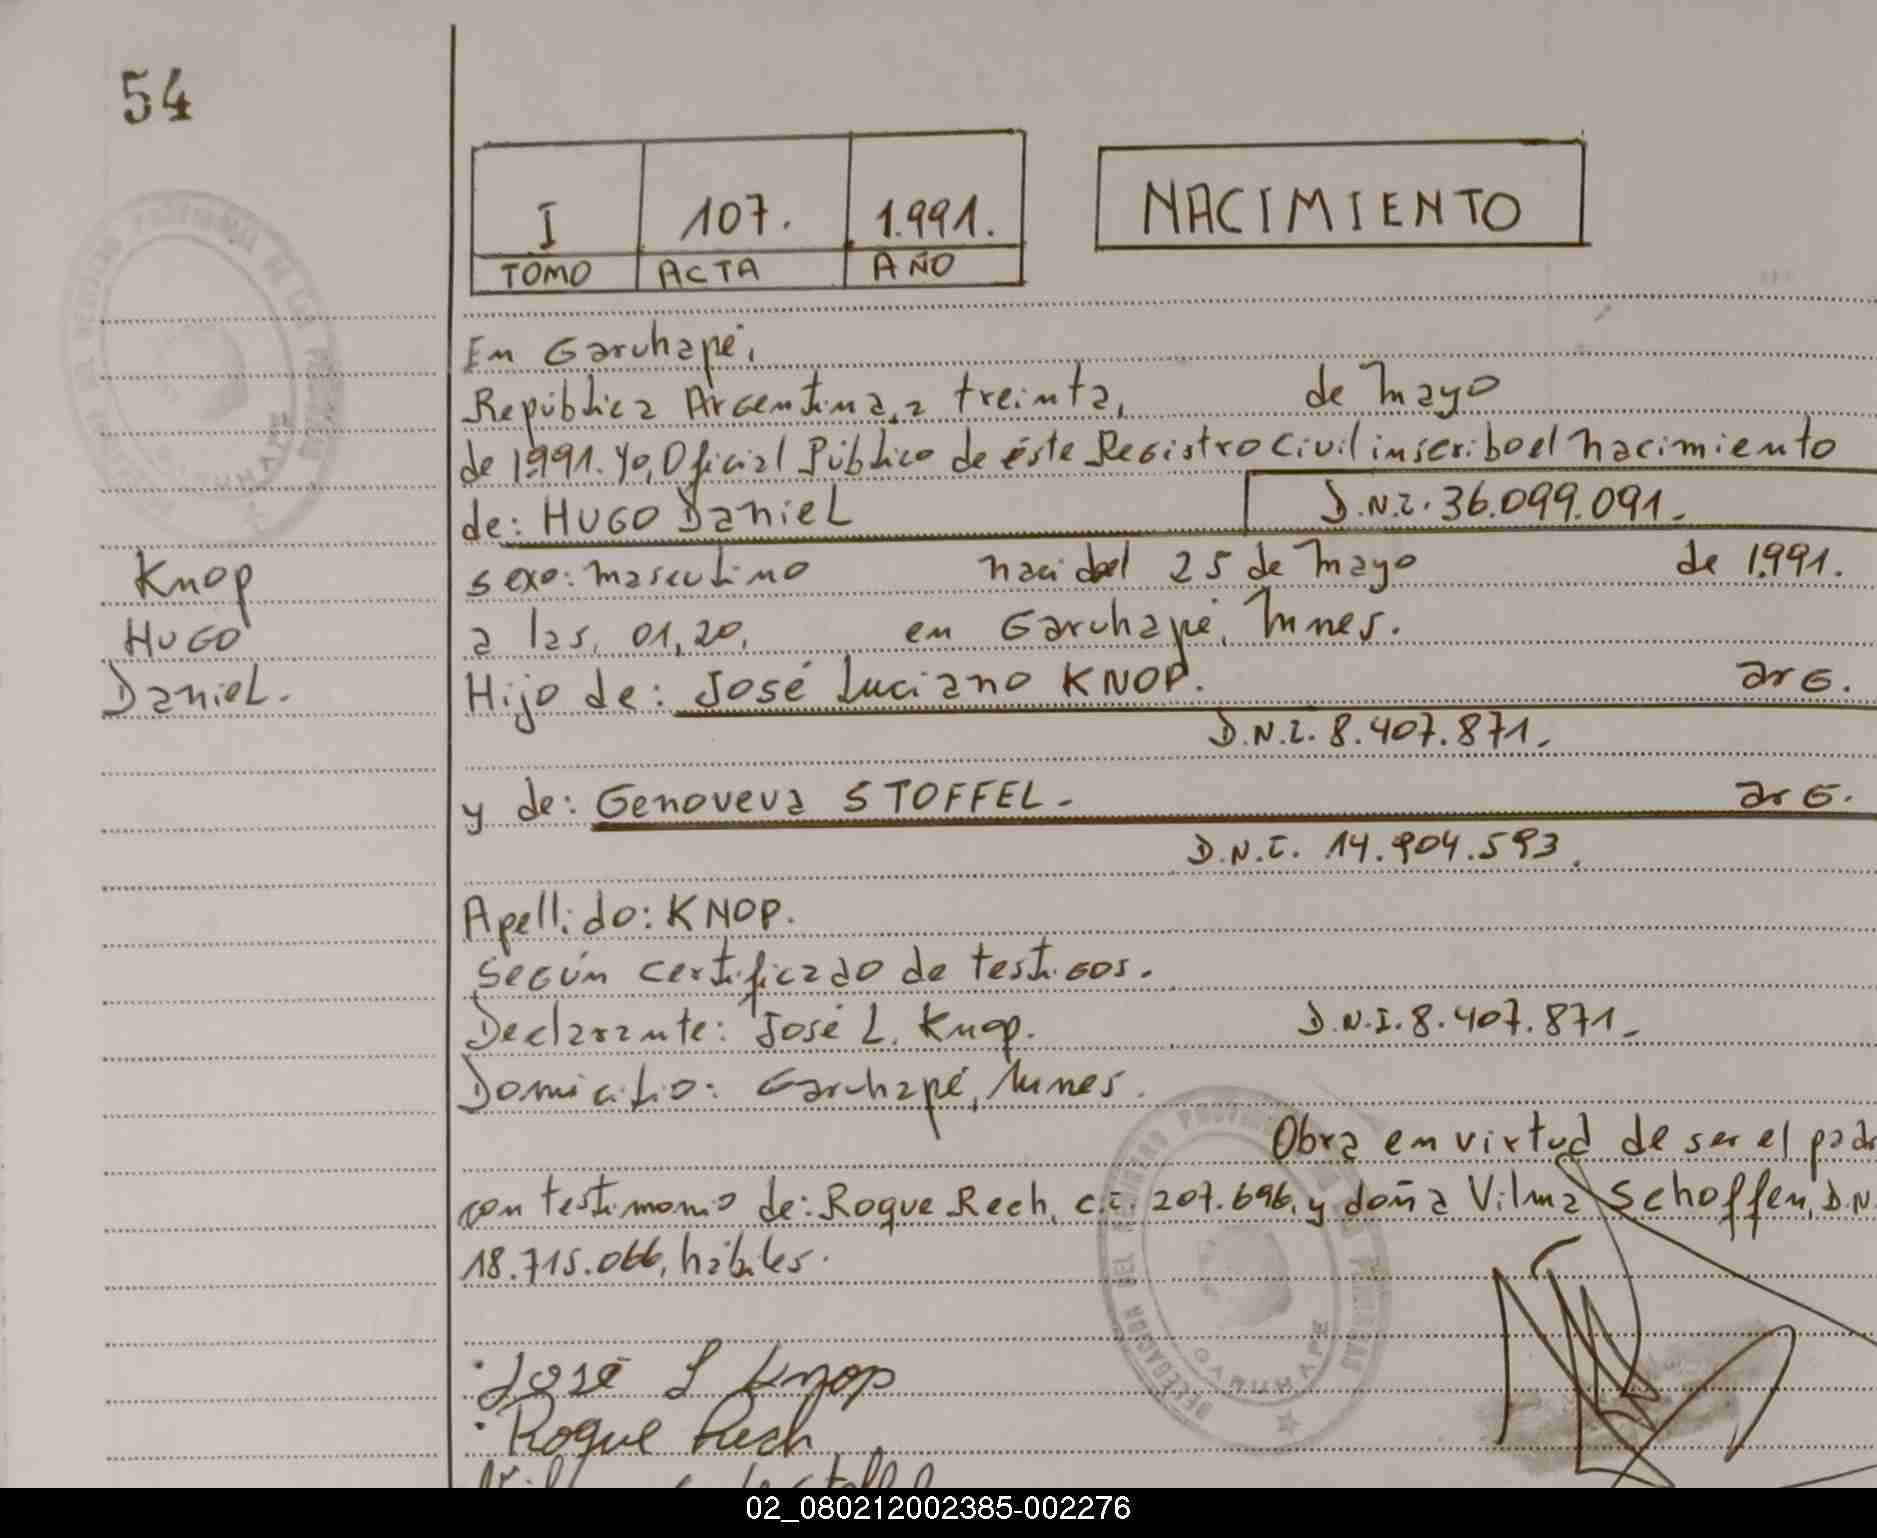 54
I 107. 1.991.
TOMO ACTA AÑO
NACIMIENTO
En Garuhapé,
República Argentina, a treinta, de mayo
de 1.991. Yo, Oficial Público de éste Registro Civil inscribo el nacimiento
de: HUGO DanieL D.N.I. 36.099.091.-
Knop
HUGO
DanieL.
sexo: masculino nacido el 25 de mayo de 1.991.
a las, 01,20, en Garuhapé, Mnes.
Hijo de: José Luciano KNOP. arG.
D.N.I. 8.407.871.-
y de: Genoveva STOFFEL.- arG.
D.N.I. 14.904.593.
Apellido: KNOP.
Según certificado de testigos.
Declarante: José L. Knop. D.N.I. 8.407.871.-
Domicilio: Garuhapé, Mnes.
Obra en virtud de ser el padr
con testimonio de: Roque Rech, c.i. 207.696, y doña Vilma Schoffen, D.N.
18.715.066, hábiles.
José L Knop
Roque Rech
GARUHAPE
02_080212002385-002276